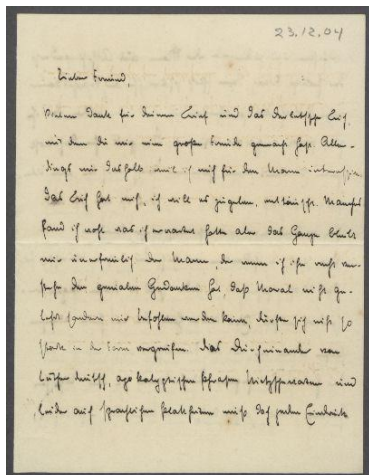 23.12.04
Lieber Freund,
vielen Dank für deinen Brief und das Buch,
mit dem du mir eine große Freude gemacht hast. Aller-
dings nur deshalb weil ich mich für den Mann interessiere
Das Buch hat mich, ich will es zugeben, enttäuscht. Manches
fand ich wohl was ich erwartet hatte aber das Ganze bleibt
mir unerfreulich der Mann, der wenn ich ihn recht ver-
stehe den genialen Gedanken hat, daß Moral nicht ge-
lehrt sondern nur befohlen werden kann, dürfte sich nicht so
stark in der Form vergreifen. Das Durcheinander von
apokalyptischen Phrasen und
leider auch sprachlichen macht doch Eindruck